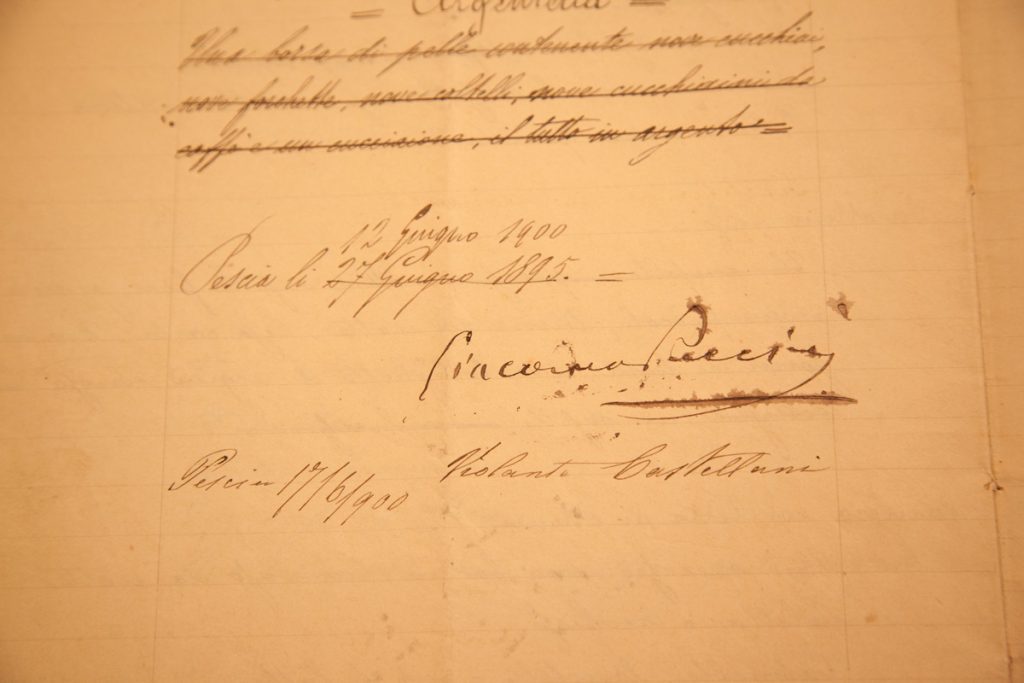 = Argenteria =
Una borsa di pelle contenente nove cucchiai,
nove forchette, nove coltelli, nove cucchiaini da
caffè e un cucciaione, il tutto in argento =
12 Giugno 1900
Pescia li 27 Giugno 1895. =
Giacomo Puccini
Pescia 17/6/900 Violante Castellani